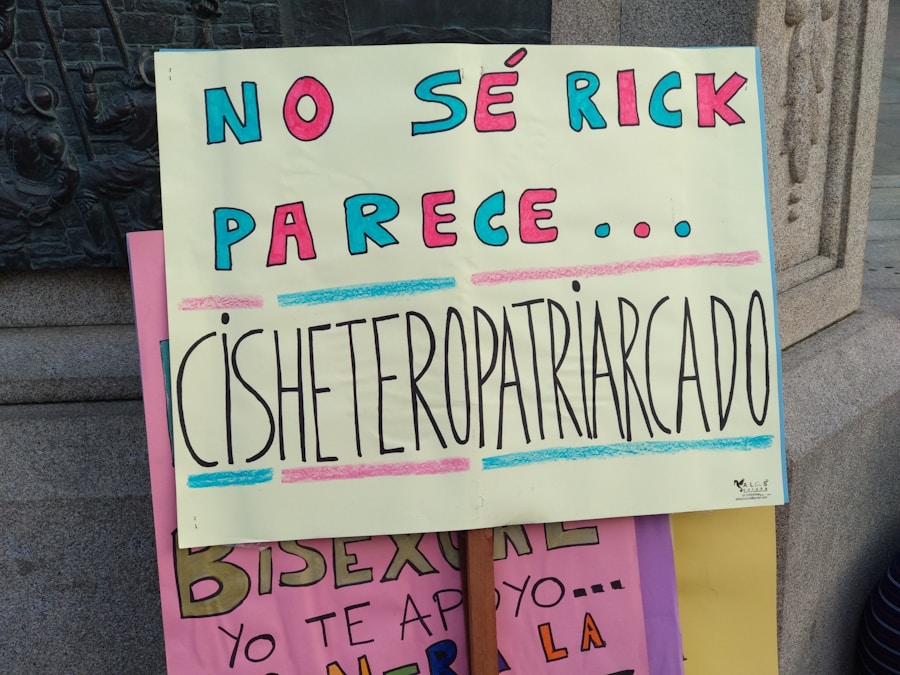 NO SÉ RICK
PARECE...
CISHETEROPATRIARCADO
BISEXUAL
YO TE APOYO...
LA